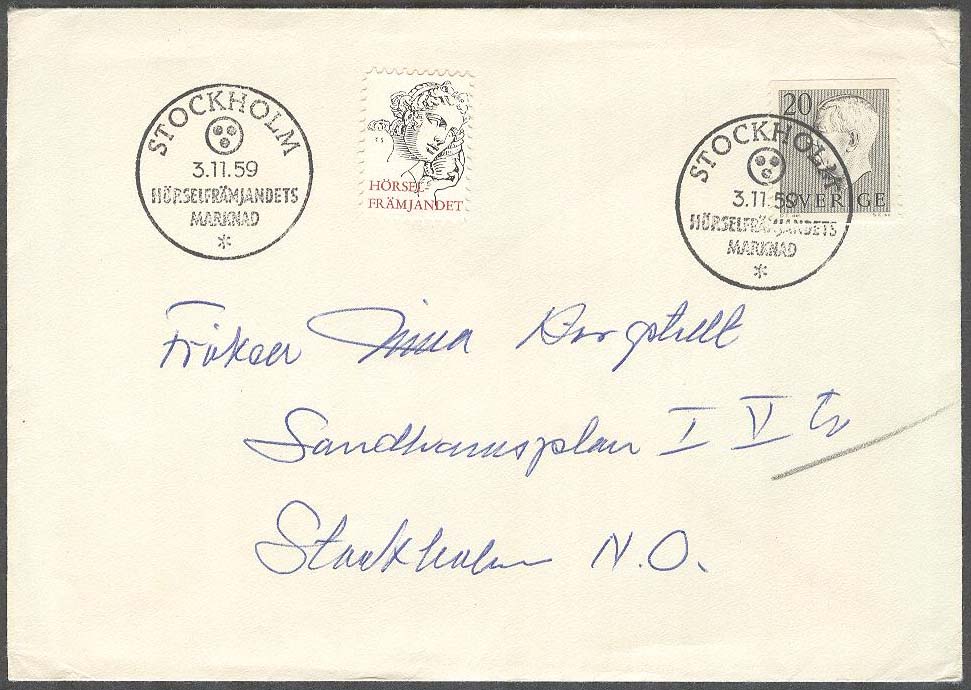 STOCKHOLM
3.11.59
HÖRSELFRÄMJANDETS
MARKNAD
HÖRSEL-
FRÄMJANDET
20
SVERIGE
STOCKHOLM
3.11.59
HÖRSELFRÄMJANDETS
MARKNAD
Fröken Nina
Sandhamsplan I V tr
Stockholm N.O.